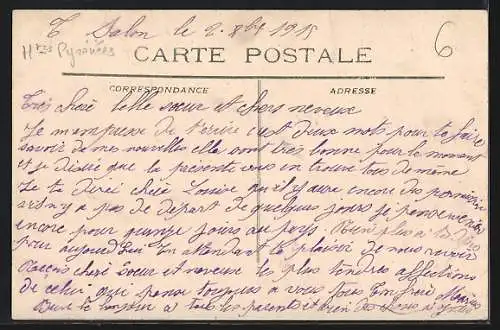 T Salon le 2 8bre 1915
Htes Pyrénées
6
CARTE POSTALE
CORRESPONDANCE
ADRESSE
Très chère belle sœur et chers neveux
Je m'empresse de t'écrire ces deux mots pour te faire
savoir de mes nouvelles elle sont très bonne pour le moment
et je désire que la présente vous en trouve tous de même
Je te dirai chère Louise qu'il y aura encore des permission
si n'y a pas de départ de quelques jours je pense venir
encore pour quinze jours au pays. Rien plus à te dire
pour aujourd'hui En attendant le plaisir de nous revoir
Reçois chère sœur et neveux les plus tendres affections
de celui qui pense toujours a vous pour la vie
le bonjour a tous les parents et bien des